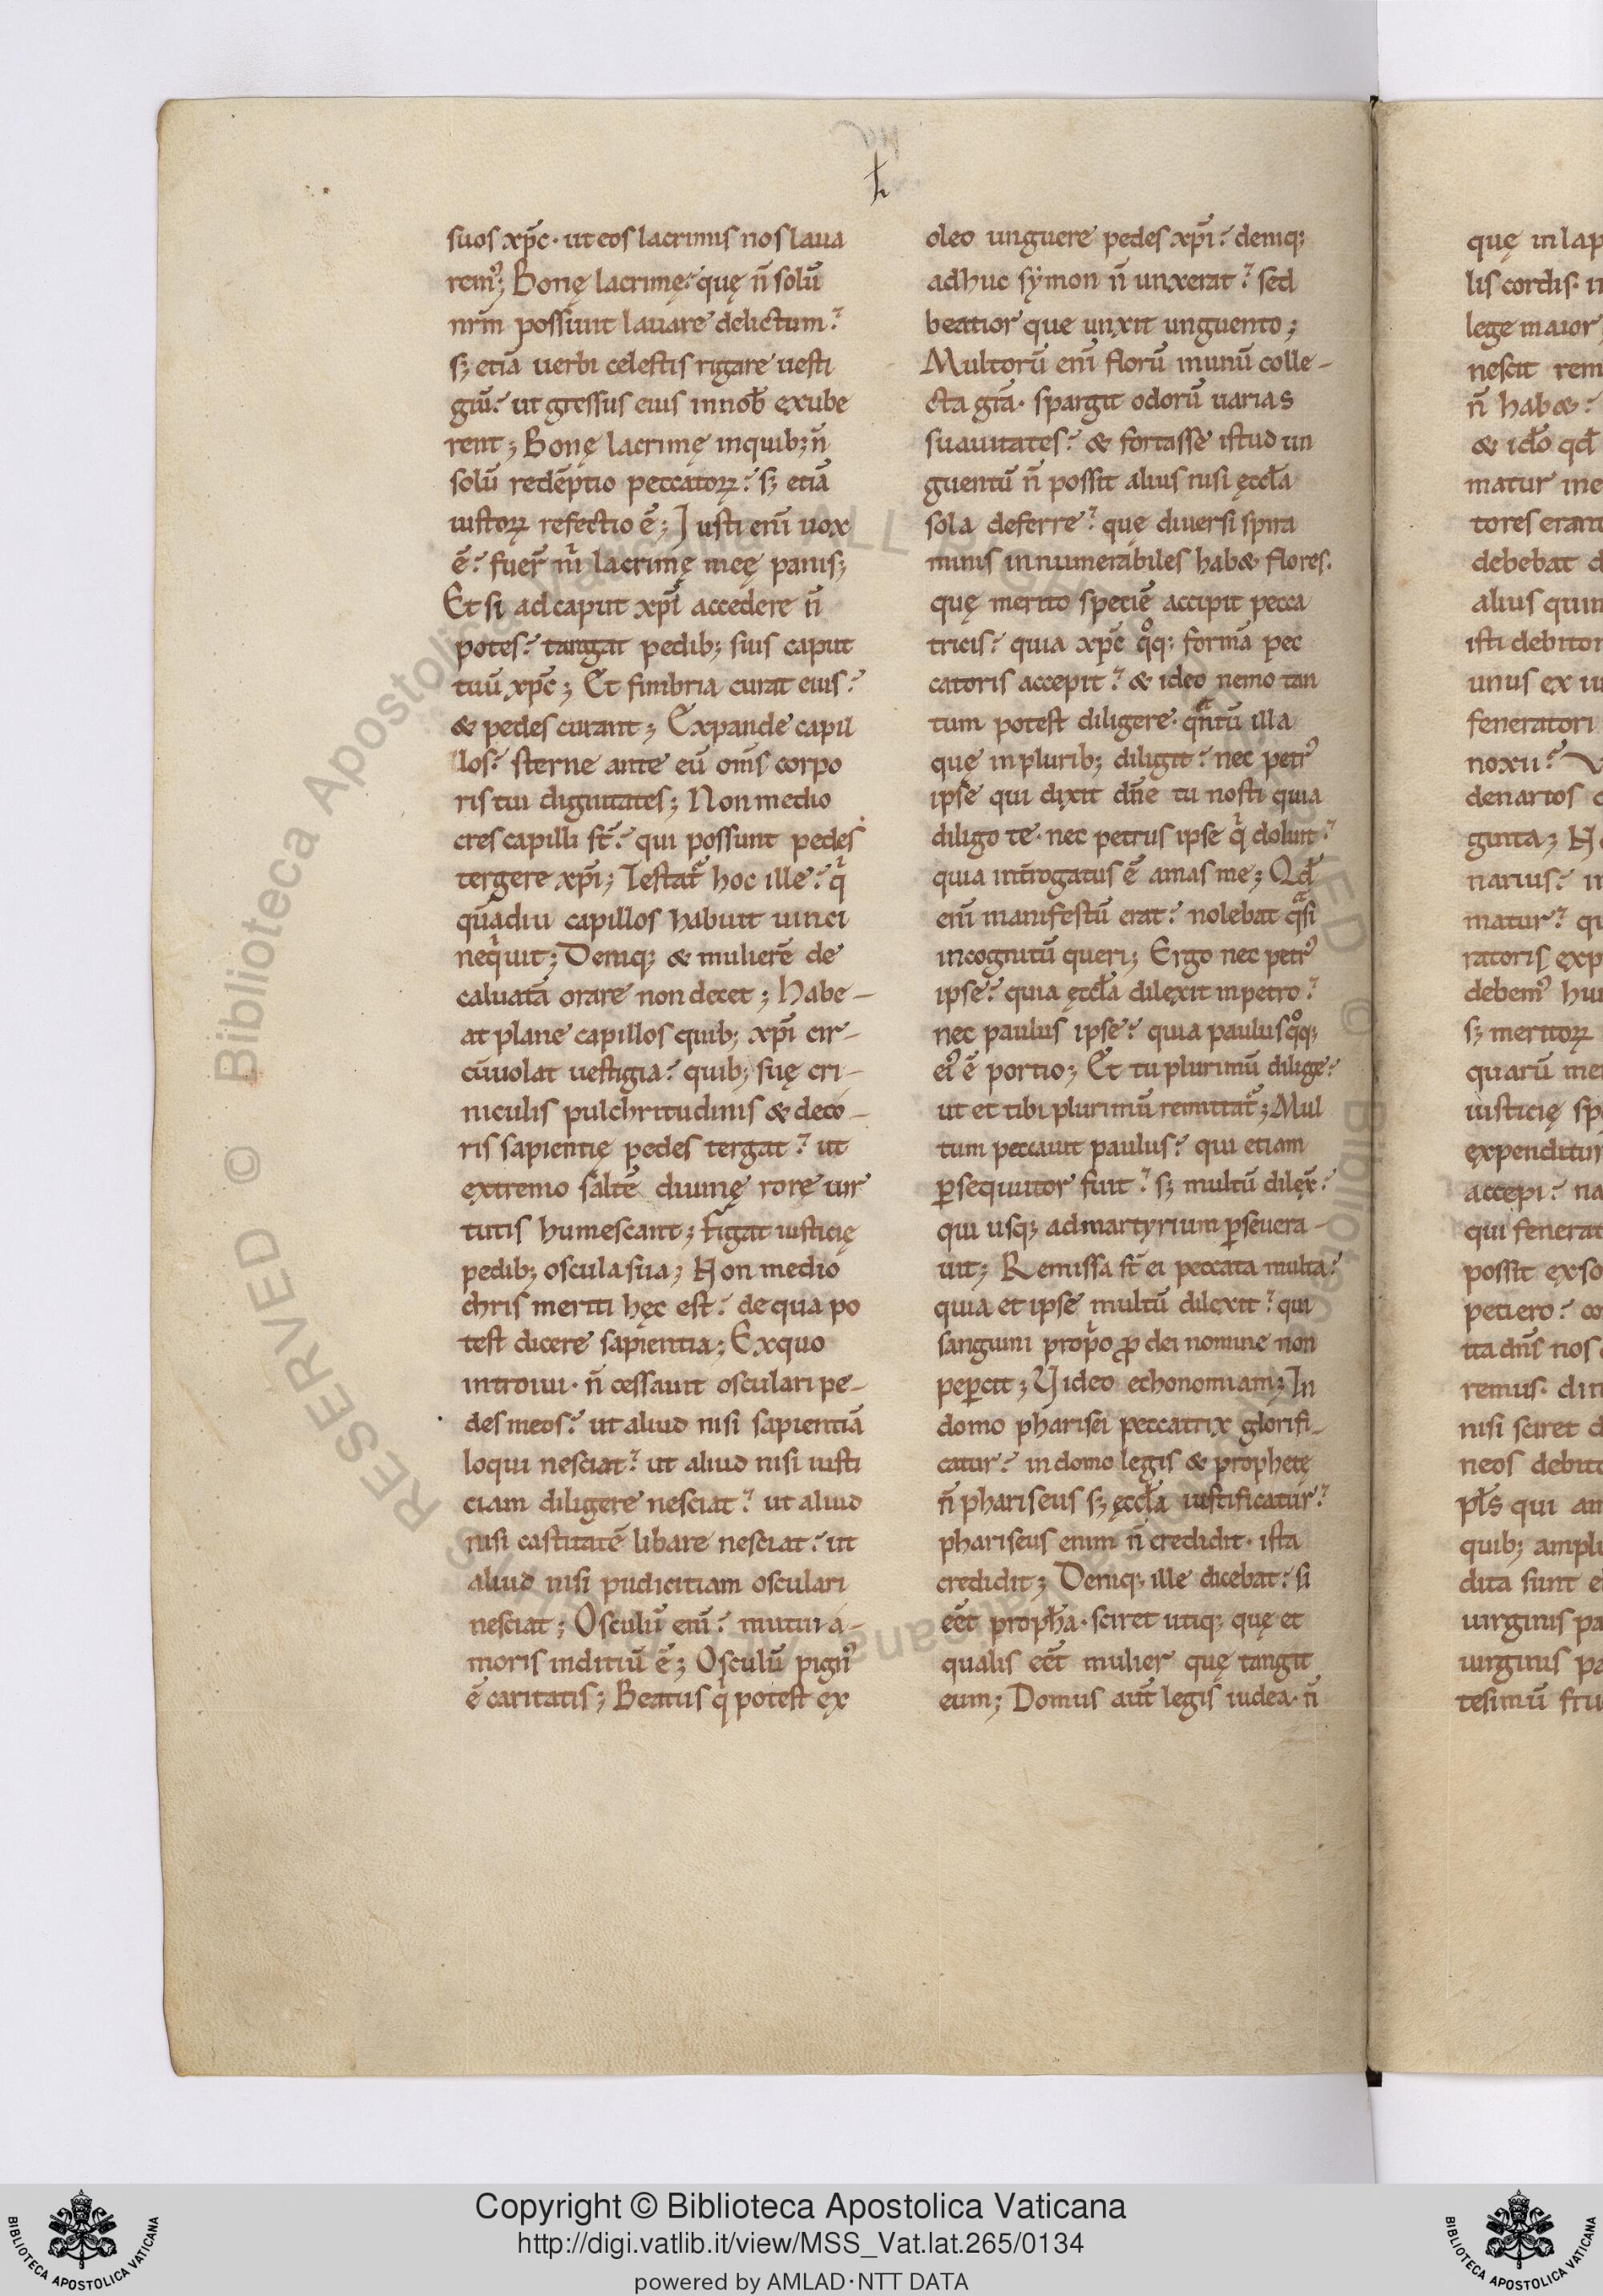 suos xp̄c · ut eos lacrimis nos laua
remꝰ; Bonę lacrimę? quę n̄ solū
nr̄m possunt lauare delictum?
sꝫ etiā uerbi celestis rigare uesti
giū? ut gressus eius in nob̄ exube
rent; Bonę lacrimę in quibꝫ n̄
solū redēptio peccatoꝝ? sꝫ etiā
iustoꝝ refectio ē; Iusti eni̅ uox
ē? fuer̄ m̄ lacrimę meę panis;
Et si ad caput xp̄i accedere n̄
potes? tangat pedibꝫ suis caput
tuū xp̄c; Et fimbria curat eius?
& pedes curant; Expande capil
llos? sterne ante eū om̄s corpo
ris tui dignitates; Non medio
cres capilli st̄? qui possunt pedes
tergere xp̄i; Testat᷑ hoc ille? qͥ
quādiu capillos habuit uinci
neqͥuit; Deniqꝫ & mulierē de
caluatā orare non decet; Habe-
at plane capillos quibꝫ xp̄i cir-
cūuolat uestigia? quibꝫ suę cri-
niculis pulchritudinis & deco-
ris sapientię pedes tergat? ut
extremo saltē diuinę rore uir
tutis humescant; Figat iusticię
pedibꝫ oscula sua; Non medio
chris meriti hęc est? de qua po
test dicere sapientia; Ex quo
introiui · n̄ cessauit osculari pe-
des meos? ut aliud nisi sapientiā
loqui nesciat? ut aliud nisi iusti
ciam diligere nesciat? ut aliud
nisi castitatē libare nesciat? ut
aliud nisi pudicitiam osculari
nesciat; Osculū eni̅? mutui a-
moris inditiū ē; Osculū pignꝰ
ē caritatis; Beatus qͥ potest ex
oleo unguere pedes xp̄i? deniqꝫ
adhuc sẏmon n̄ unxerat? sed
beatior que unxit unguento;
Multorū eni̅ florū in unū colle-
cta gr̄a · spargit odorū uarias
suauitates? & fortasse istud un
guentū n̄ possit alius nisi ęccl̄a
sola deferre? quę diuersi spira
minis innumerabiles hab& flores.
quę merito speciē accipit pecca
tricis? quia xp̄c qͦqꝫ formā pec
catoris accepit? & ideo nemo tan
tum potest diligere · qᷓntū illa
quę in pluribꝫ diligit? nec petrꝰ
ipse qui dixit dn̄e tu nosti quia
diligo te · nec petrus ipse qͥ doluit?
quia int̄rogatus ē amas me; Qd̄
eni̅ manifestū erat? nolebat qᷓsi
incognitū queri; Ergo nec petrꝰ
ipse? quia ęccl̄a dilexit in petro?
nec paulus ipse? quia paulus qͦqꝫ
eiꝰ ē portio; Et tu plurimū dilige?
ut et tibi plurimū remittat᷑; Mul
tum peccauit paulus? qui etiam
ꝑsequutor fuit? sꝫ multū dilex̄?
qui usqꝫ ad martyrium ꝑseuera-
uit; Remissa st̄ ei peccata multa?
quia et ipse multū dilexit? qui
sanguini propͥo ꝓ dei nomine non
peꝑcit; Uideo echonomiam; In
domo pharisei peccatrix glorifi-
catur? in domo legis & prophetę
n̄ phariseus sꝫ ęccl̄a iustificatur?
phariseus enim n̄ credidit · ista
credidit; Deniqꝫ ille dicebat? si
eēt proph̄a · sciret utiqꝫ quę et
qualis eēt mulier quę tangit
eum; Domus aut̄ legis iudea · n̄
quę in lap
lis cordis · in
lege maior
nescit rem
n̄ hab&?
& id̄o qd̄
matur me
tores erant
debebat d
alius quin
isti debitor
unus ex iu
feneratori
noxii? V
denarios
ginta; H
narius? in
matur? qu
ratoris exp
debemꝰ hu
sꝫ meritoꝝ
quarū me
iusticię sp
expenditur
accepi? na
qui fenerat
possit exso
petiero? co
tta dn̄s nos
remus · dim
nisi sciret d
neos debit
pl̄s qui am
quibꝫ ampli
dita sunt e
uirginis pa
uirginis pa
tesimū fru
Copyright © Biblioteca Apostolica Vaticana
http://digi.vatlib.it/view/MSS_Vat.lat.265/0134
powered by AMLAD·NTT DATA
BIBLIOTECA APOSTOLICA VATICANA
BIBLIOTECA APOSTOLICA VATICANA